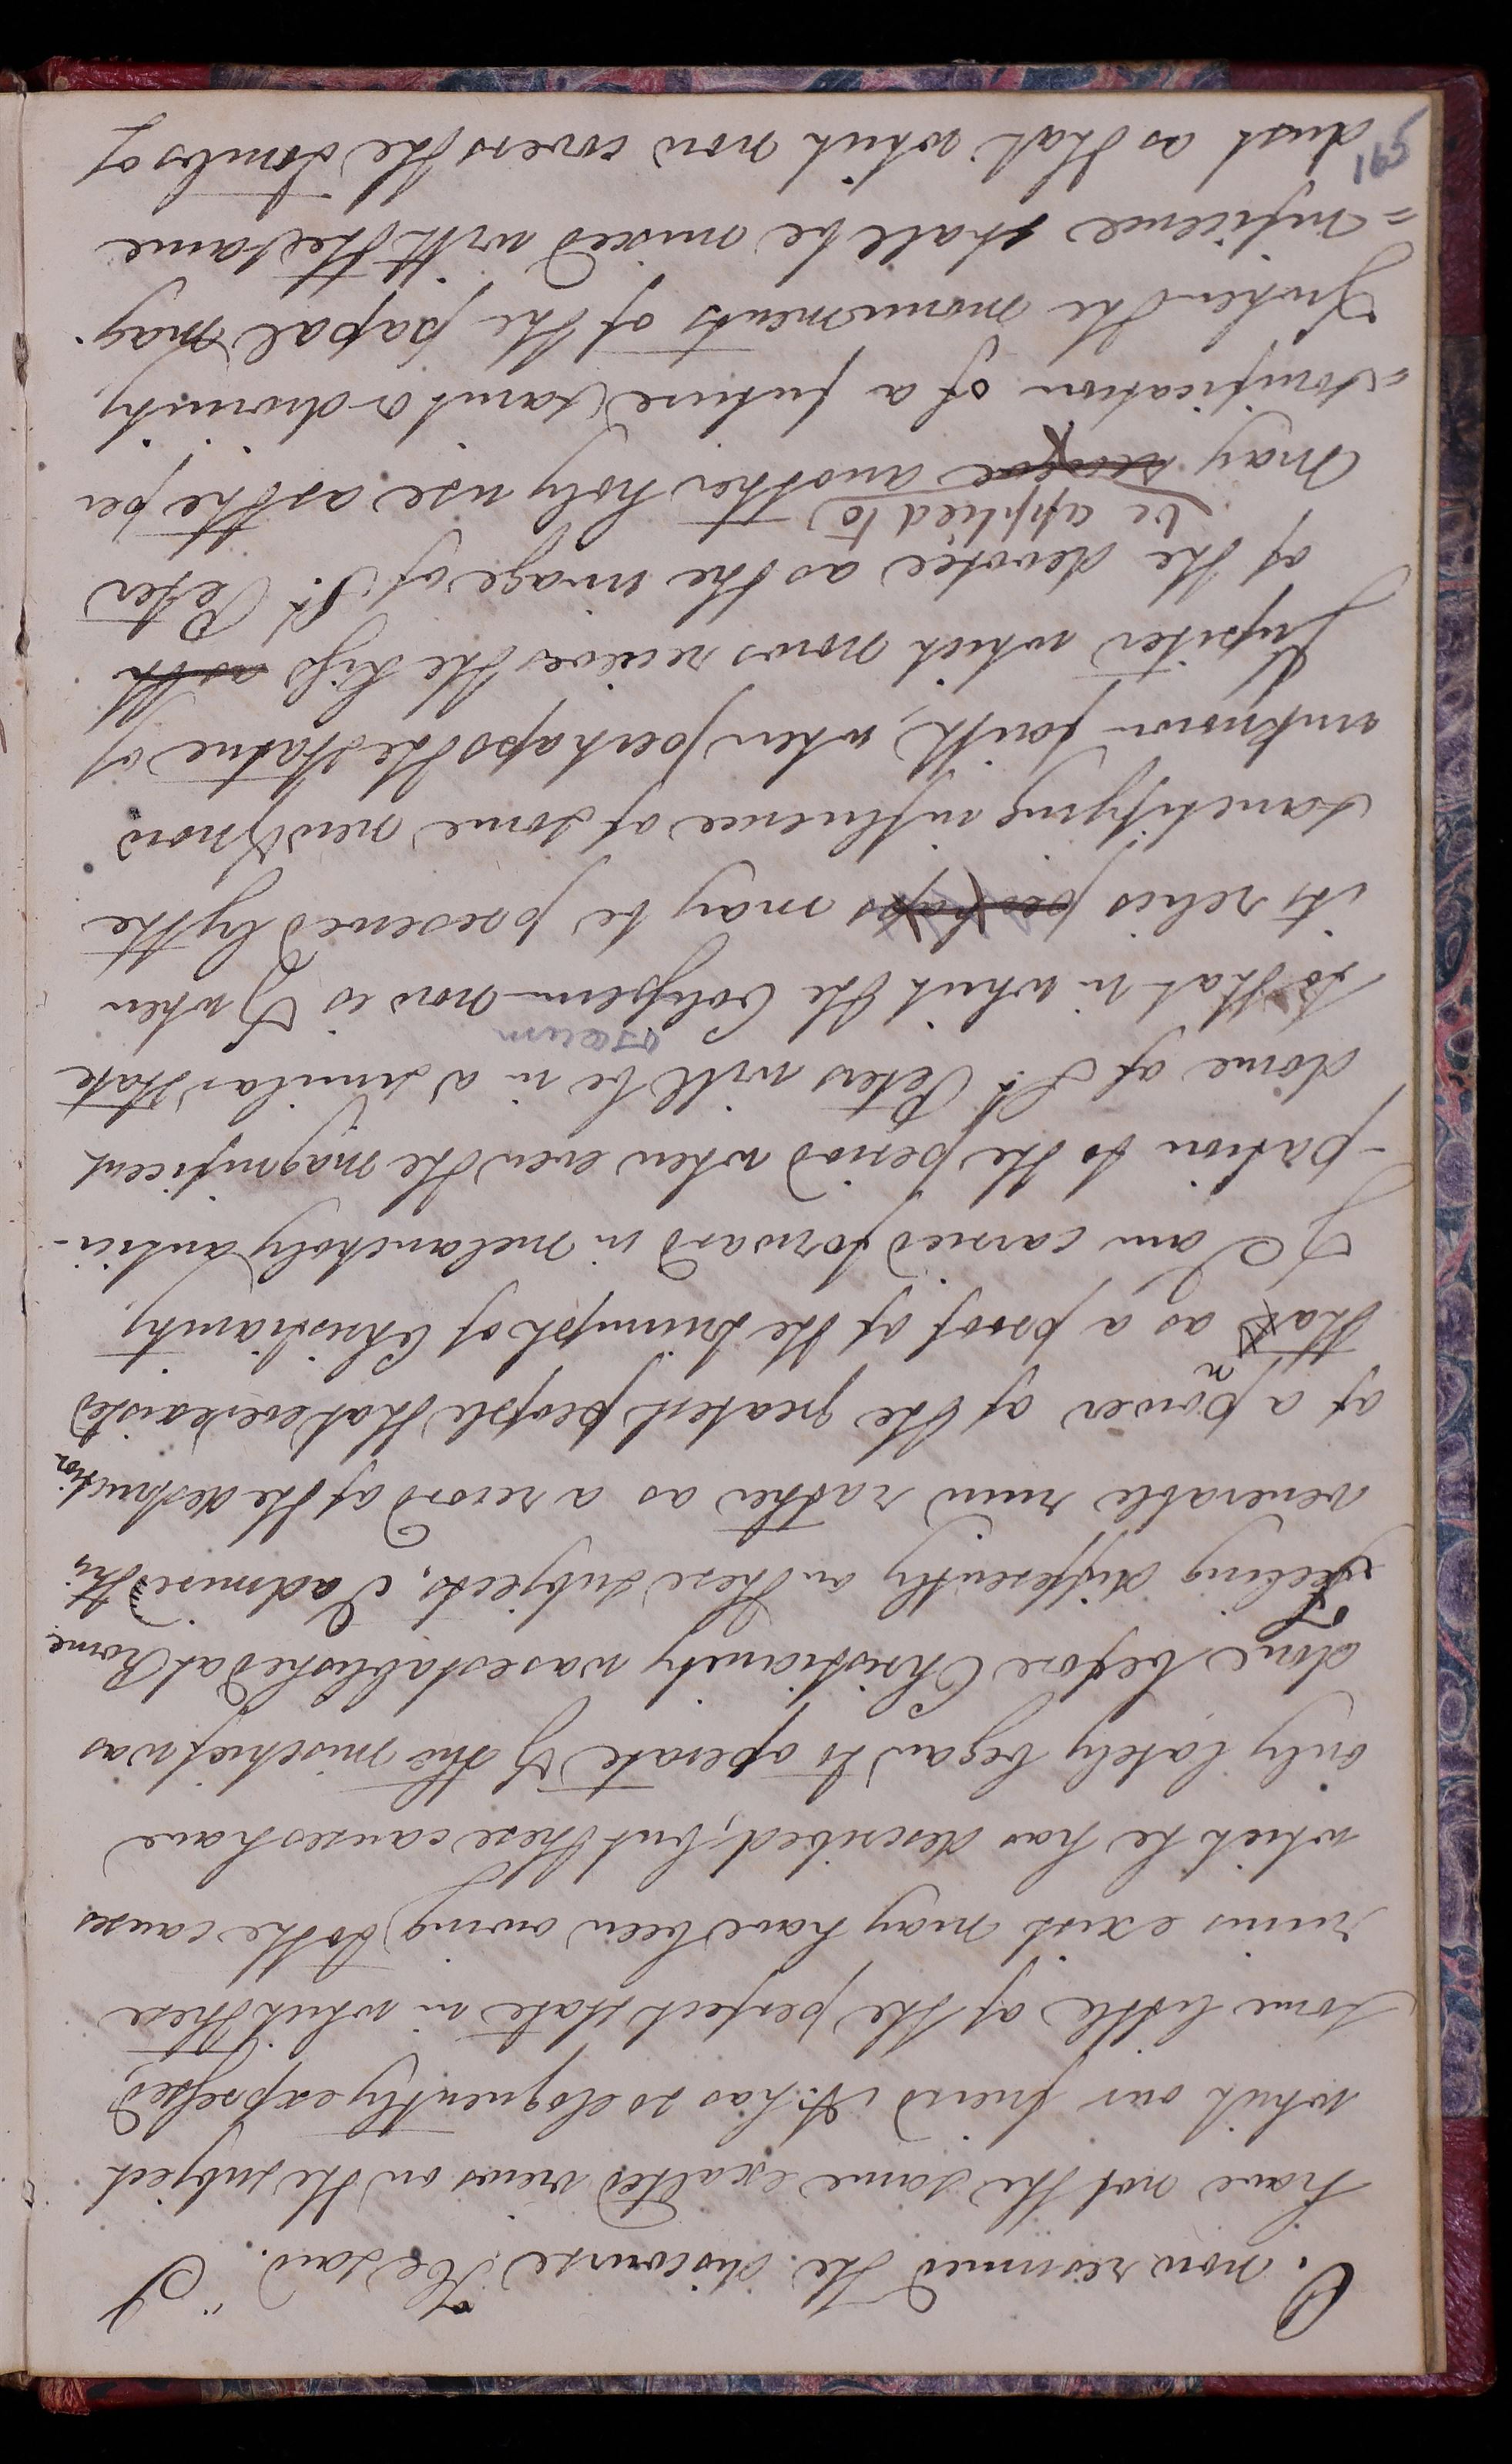 O. now resumed the discourse. He said. "I
have not the same exalted views on the subject
which our friend A: has so eloquently expressed,
Some little of the perfect state in which these
ruins exist may have been owing to the causes
which he has described; but these causes have
only lately began to operate & the mischief was
done before Christianity was established at Rome.
Feeling differently on these subjects, I admire this
venerable ruin rather as a record of the destruction
of a power of the greatest people that ever existed
than as a proof of the triumph of Christianity,
& I am carried forward in melancholy antici-
-pation to the period when even the magnificent
dome of St. Peters will be in a similar state
oseum
to that in which the Colyseum now is & when
its relics perhaps may be preserved by the
sanctifying influence of some new & now
unknown faith; when perhaps the statue of
Jupiter which now receives the kiss as th
of the devotee as the image of St. Peter
be applied to
may receive another holy use as the per
=sonification of a future saint or divinity;
& when the monuments of the papal mag-
=nificence shall be mixed with the same
dust as that which now covers the tombs of
165